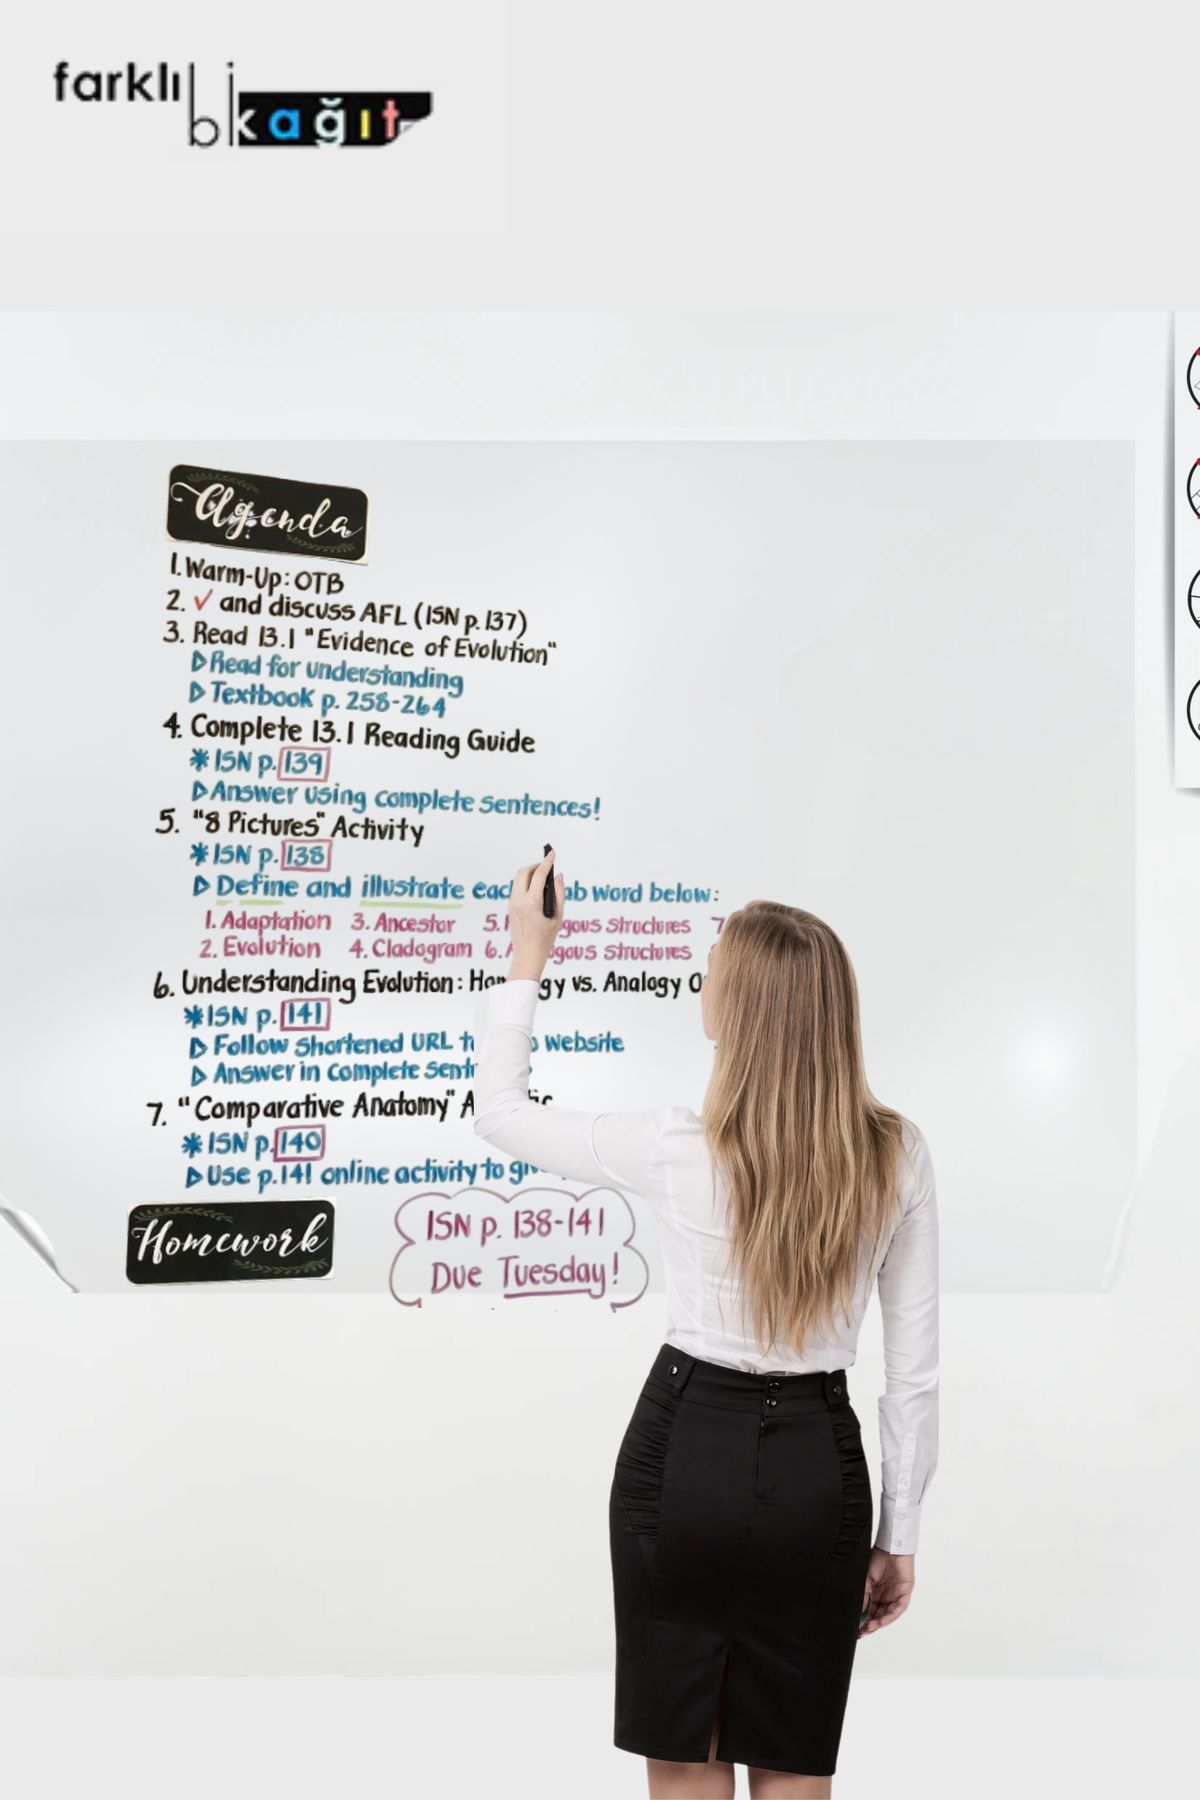 farklı bi kağıt
Agenda
1. Warm-Up: OTB
2. ✓ and discuss AFL (ISN p. 137)
3. Read 13.1 "Evidence of Evolution"
▷ Read for understanding
▷ Textbook p. 258-264
4. Complete 13.1 Reading Guide
* ISN p. 139
▷ Answer using complete sentences!
5. "8 Pictures" Activity
* ISN p. 138
▷ Define and illustrate word below:
1. Adaptation 3. Ancestor 5. Structures 7
2. Evolution 4. Cladogram 6. Structures
6. Understanding Evolution: vs. Analogy
* ISN p. 141
▷ Follow Shortened URL website
▷ Answer in complete
7. "Comparative Anatomy"
* ISN p. 140
▷ Use p.141 online activity to
Homework
ISN p. 138-141
Due Tuesday!